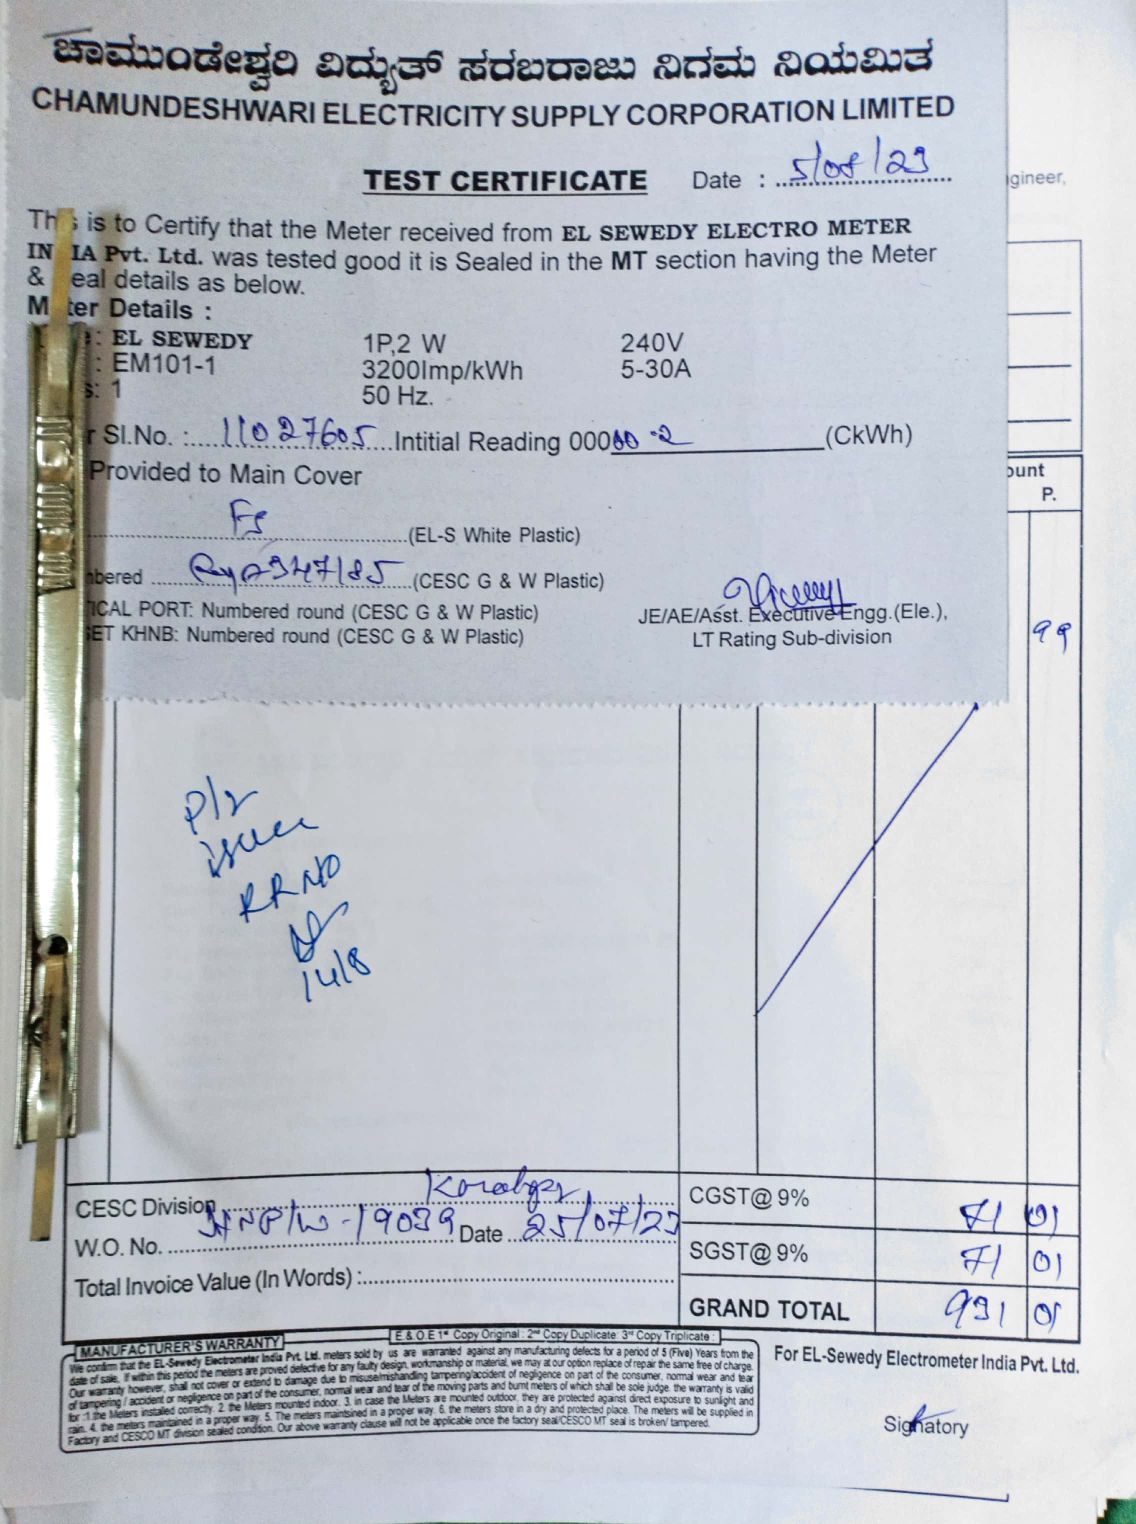 ಚಾಮುಂಡೇಶ್ವರಿ ವಿದ್ಯುತ್ ಸರಬರಾಜು ನಿಗಮ ನಿಯಮಿತ
CHAMUNDESHWARI ELECTRICITY SUPPLY CORPORATION LIMITED
TEST CERTIFICATE Date : 5/08/23
gineer,
is to Certify that the Meter received from EL SEWEDY ELECTRO METER
IN IA Pvt. Ltd. was tested good it is Sealed in the MT section having the Meter
& eal details as below.
M ter Details :
: EL SEWEDY 1P,2 W 240V
: EM101-1 3200Imp/kWh 5-30A
s: 1 50 Hz.
r Sl.No. : 11027605 Intitial Reading 00000.2 (CkWh)
Provided to Main Cover
ount
P.
(EL-S White Plastic)
bered (CESC G & W Plastic)
ICAL PORT: Numbered round (CESC G & W Plastic)
ET KHNB: Numbered round (CESC G & W Plastic)
JE/AE/Asst. Executive Engg.(Ele.),
LT Rating Sub-division
99
issue
RR NO
14/8
CESC Division
W.O. No. Date 25/07/23
Total Invoice Value (In Words) :
CGST@ 9% 71 01
SGST@ 9% 71 01
GRAND TOTAL 931 01
E & O.E 1st Copy Original : 2nd Copy Duplicate: 3rd Copy Triplicate :
MANUFACTURER'S WARRANTY
We confirm that the EL-Sewedy Electrometer India Pvt. Ltd. meters sold by us are warranted against any manufacturing defects for a period of 5 (Five) Years from the
date of sale, If within this period the meters are proved defective for any faulty design, workmanship or material, we may at our option replace of repair the same free of charge.
Our warranty however, shall not cover or extend to damage due to misuse/mishandling tampering/accident of negligence on part of the consumer, normal wear and tear
of tampering / accident or negligence on part of the consumer, normal wear and tear of the moving parts and burnt meters of which shall be sole judge. the warranty is valid
for :1.the Meters installed correctly. 2. the Meters mounted indoor. 3. in case the Meters are mounted outdoor, they are protected against direct exposure to sunlight and
rain. 4. the meters maintained in a proper way. 5. The meters maintsined in a proper way. 6. the meters store in a dry and protected place. The meters will be supplied in
Factory and CESCO MT division sealed condition. Our above warranty clause will not be applicable once the factory seal/CESCO MT seal is broken/ tampered.
For EL-Sewedy Electrometer India Pvt. Ltd.
Signatory